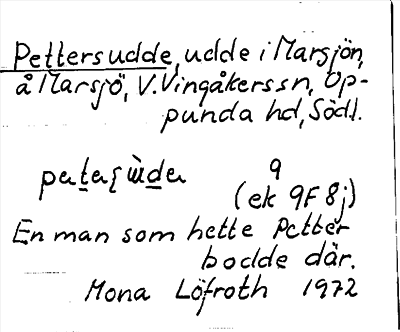 Pettersudde, udde i Marsjön,
å Marsjö, V. Vingåkerssn, Op-
punda hd, Södl.
9
(ek 9F 8j)
En man som hette Petter
bodde där.
Mona Löfroth 1972